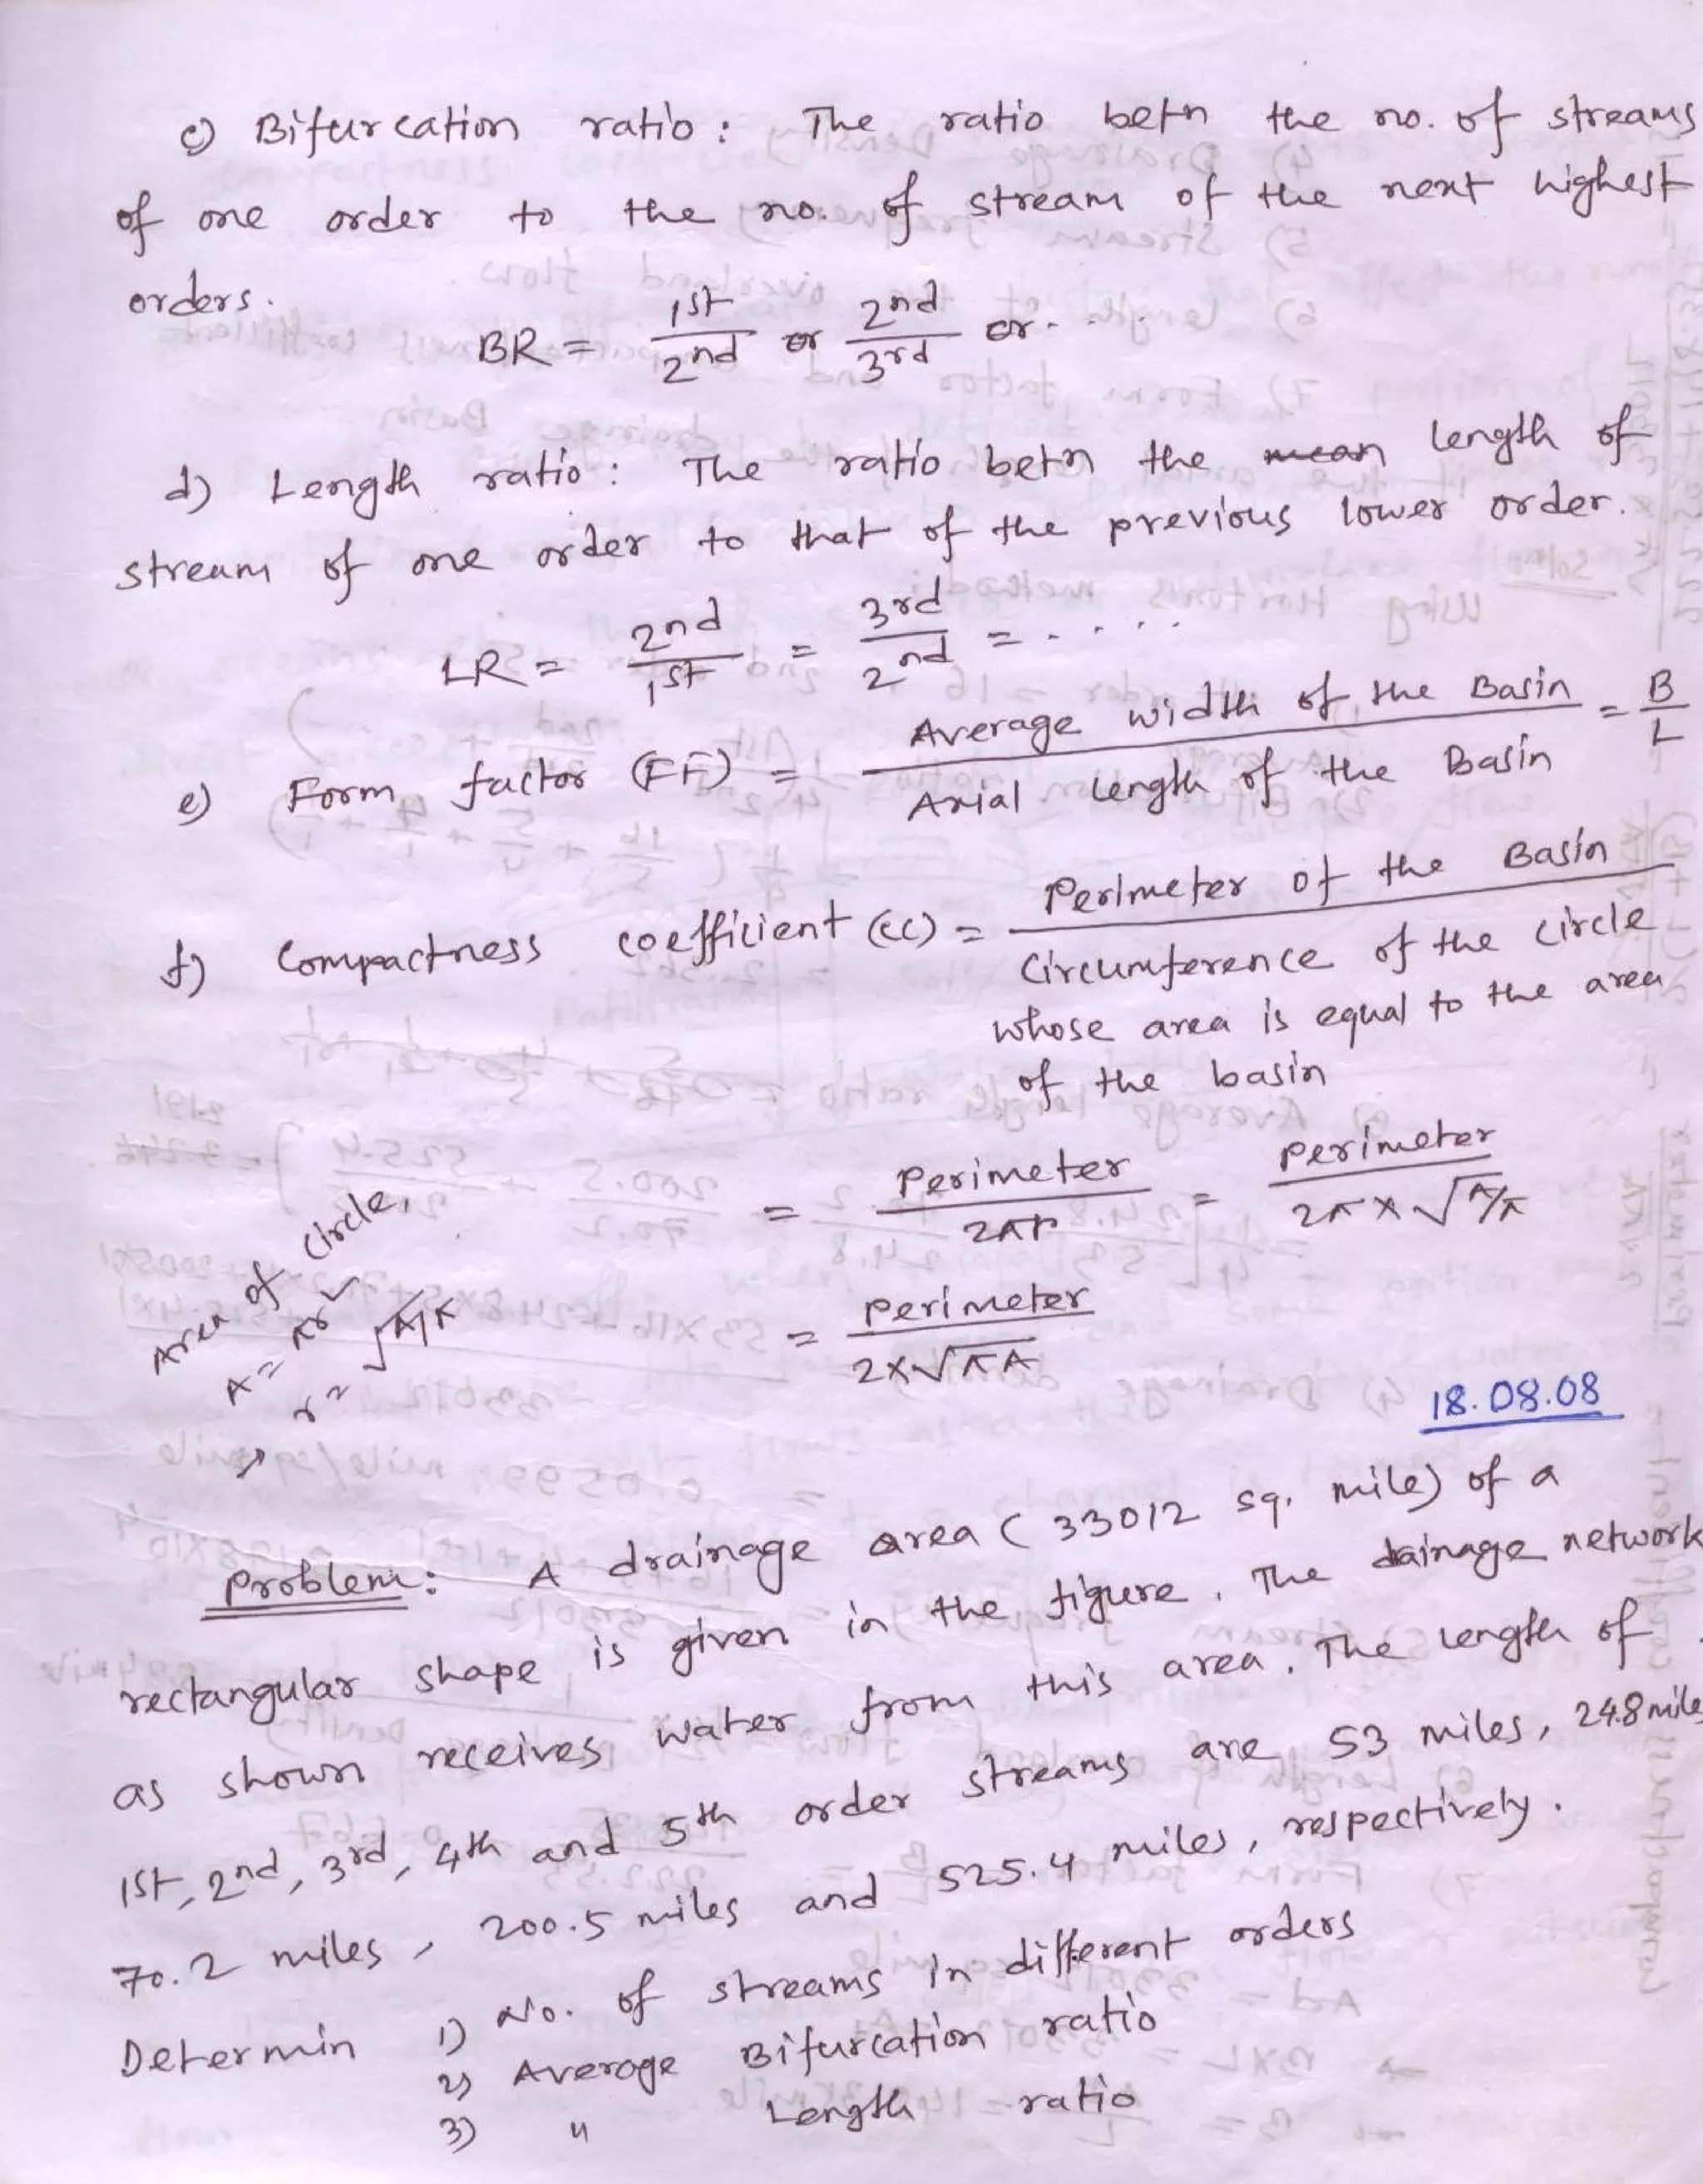 c) Bifurcation ratio: The ratio betn the no. of streams
of one order to the no. of stream of the next highest
orders.
BR = 1st/2nd or 2nd/3rd or....
d) Length ratio: The ratio betn the mean length of
stream of one order to that of the previous lower order.
LR = 2nd/1st = 3rd/2nd = .....
e) Form factor (FF) = Average width of the Basin / Axial length of the Basin = B/L
f) Compactness coefficient (CC) = Perimeter of the Basin
Circumference of the circle
whose area is equal to the area
of the basin
= Perimeter/2πr = Perimeter/2π×√A/π
= Perimeter/2×√πA
Area of circle,
A = πr²
r = √A/π
18.08.08
Problem: A drainage area (33012 sq. mile) of a
rectangular shape is given in the figure. The dainage network
as shown receives water from this area. The length of
1st, 2nd, 3rd, 4th and 5th order streams are 53 miles, 24.8 miles
70.2 miles, 200.5 miles and 525.4 miles, respectively.
Determin 1) No. of streams in different orders
2) Average Bifurcation ratio
3) " Length ratio